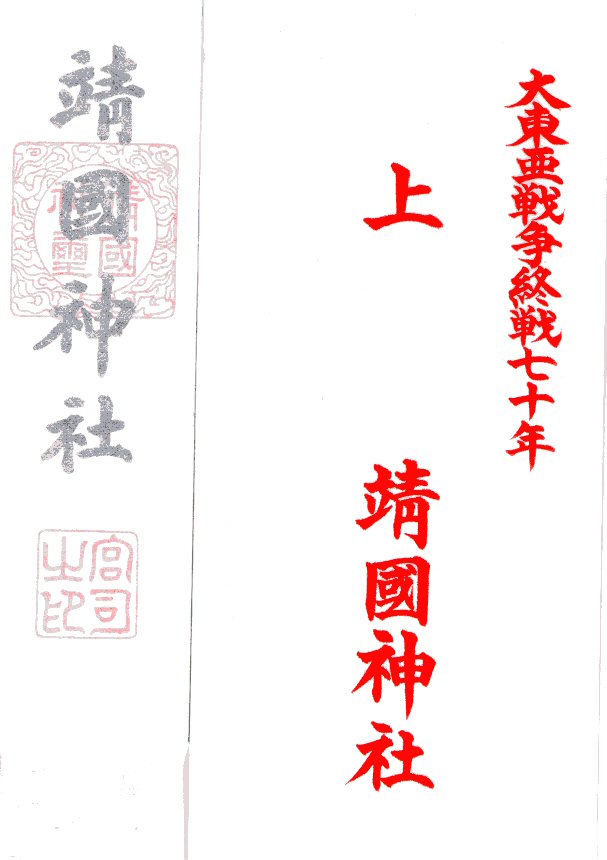 大東亜戦争終戦七十年
上
靖國神社
靖國神社
靖國
神璽
宮司
之印